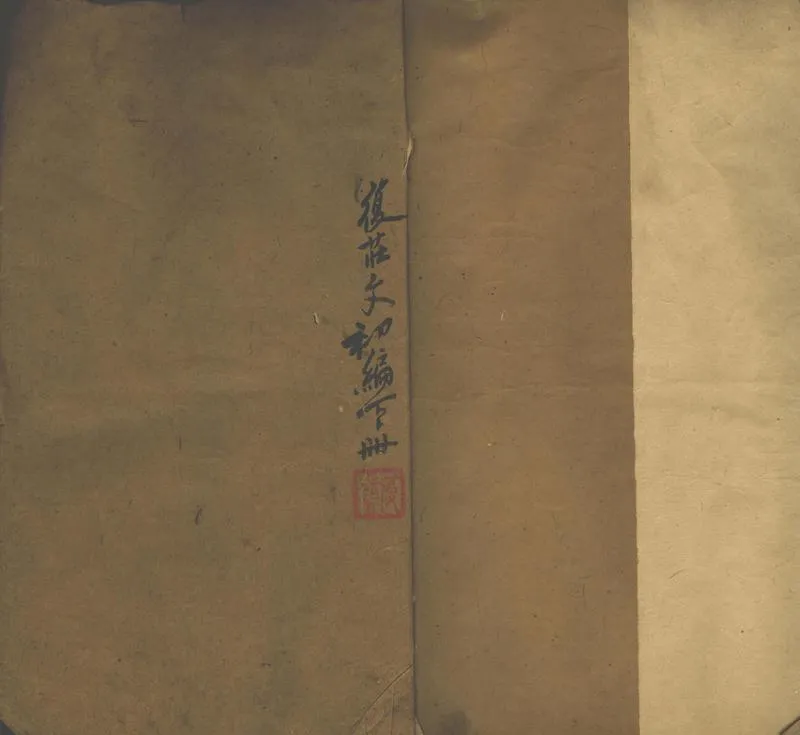 復莊文初編下冊